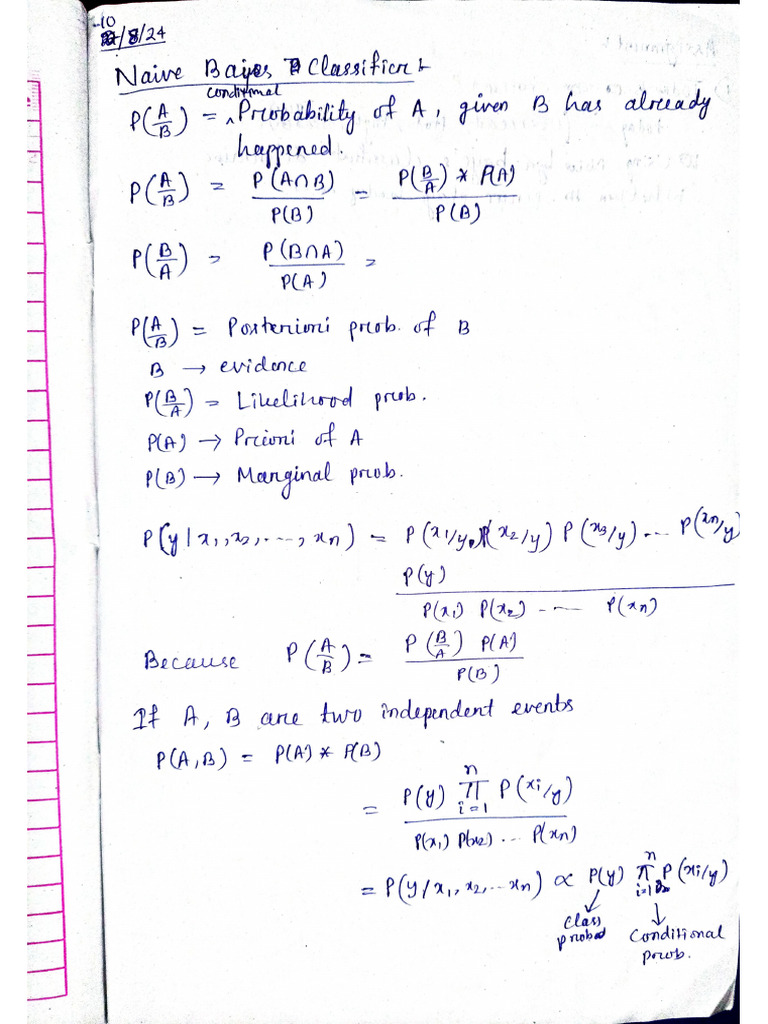 -10
/8/24
Naive Bayes Classifier :-
conditional
P(A/B) = ^ Probability of A, given B has already
happened.
P(A/B) = P(A∩B)/P(B) = P(B/A) * P(A)/P(B)
P(B/A) = P(B∩A)/P(A) =
P(A/B) = Posteriori prob. of B
B → evidence
P(B/A) = Likelihood prob.
P(A) → Priori of A
P(B) → Marginal prob.
P(y|x₁, x₂, ..., xₙ) = P(x₁/y) P(x₂/y) P(x₃/y) ... P(xₙ/y)
P(y)
P(x₁) P(x₂) ... P(xₙ)
Because P(A/B) = P(B/A) P(A)/P(B)
If A, B are two independent events
P(A,B) = P(A) * P(B)
= P(y) ∏ⁿᵢ₌₁ P(xᵢ/y)
P(x₁) P(x₂) ... P(xₙ)
= P(y/x₁, x₂, ... xₙ) ∝ P(y) ∏ⁿᵢ₌₁ P(xᵢ/y)
↓ ↓
Class Conditional
prob prob.